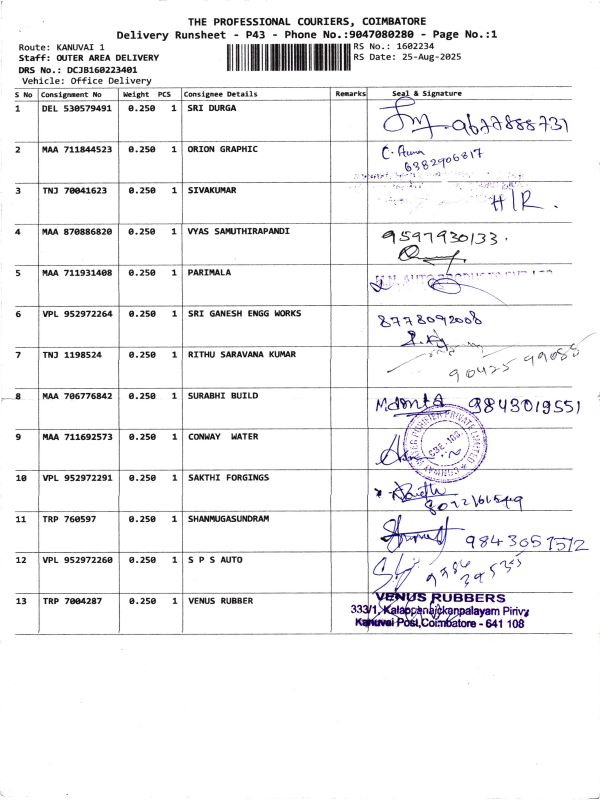 THE PROFESSIONAL COURIERS, COIMBATORE
Delivery Runsheet - P43 - Phone No.:9047080280 - Page No.:1
Route: KANUVAI 1 RS No.: 1602234
Staff: OUTER AREA DELIVERY RS Date: 25-Aug-2025
DRS No.: DCJB160223401
Vehicle: Office Delivery
S No Consignment No Weight PCS Consignee Details Remarks Seal & Signature
1 DEL 530579491 0.250 1 SRI DURGA 9677888731
2 MAA 711844523 0.250 1 ORION GRAPHIC
6382906817
3 TNJ 70041623 0.250 1 SIVAKUMAR H/R.
4 MAA 870886820 0.250 1 VYAS SAMUTHIRAPANDI 9597930133.
5 MAA 711931408 0.250 1 PARIMALA
6 VPL 952972264 0.250 1 SRI GANESH ENGG WORKS 8778092008
7 TNJ 1198524 0.250 1 RITHU SARAVANA KUMAR 90425 99088
8 MAA 706776842 0.250 1 SURABHI BUILD 9843019551
9 MAA 711692573 0.250 1 CONWAY WATER
CBE-108
10 VPL 952972291 0.250 1 SAKTHI FORGINGS
11 TRP 760597 0.250 1 SHANMUGASUNDRAM 9843051512
12 VPL 952972260 0.250 1 S P S AUTO
13 TRP 7004287 0.250 1 VENUS RUBBER VENUS RUBBERS
333/1, Kalappanaickenpalayam Pirivu
Kanuvai Post, Coimbatore - 641 108